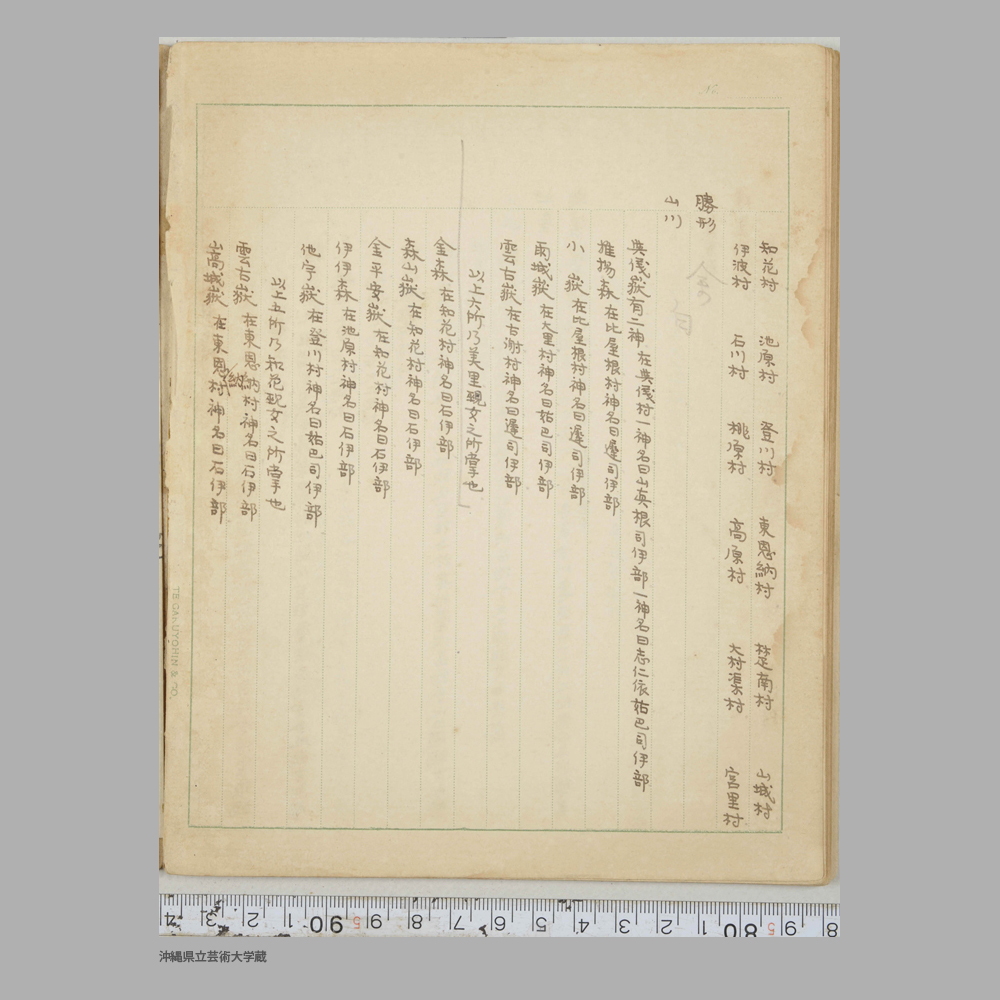 知花村 池原村 登川村 東恩納村 楚南村 山城村
伊波村 石川村 桃原村 高原村 大村渠村 宮里村
勝形
山川
奥儀嶽有二神 在奥儀村一神名曰山英根司伊部一神名曰志仁依姑巴司伊部
推揚森 在比屋根村神名曰邊司伊部
小嶽 在比屋根村神名曰邊司伊部
雨城嶽 在大里村神名曰姑巴司伊部
雲古嶽 在古謝村神名曰邊司伊部
以上六所乃美里覡女之所掌也
金森 在知花村神名曰石伊部
森山嶽 在知花村神名曰石伊部
金平安嶽 在知花村神名曰石伊部
伊伊森 在池原村神名曰石伊部
他宇嶽 在登川村神名曰姑巴司伊部
以上五所乃知花覡女之所掌也
雲古嶽 在東恩納村神名曰石伊部
高城嶽 在東恩納村神名曰石伊部
TE GAKUYOHIN & CO.
4 3 2 1 90 9 8 7 6 5 4 3 2 1 80 9 8
沖縄県立芸術大学蔵